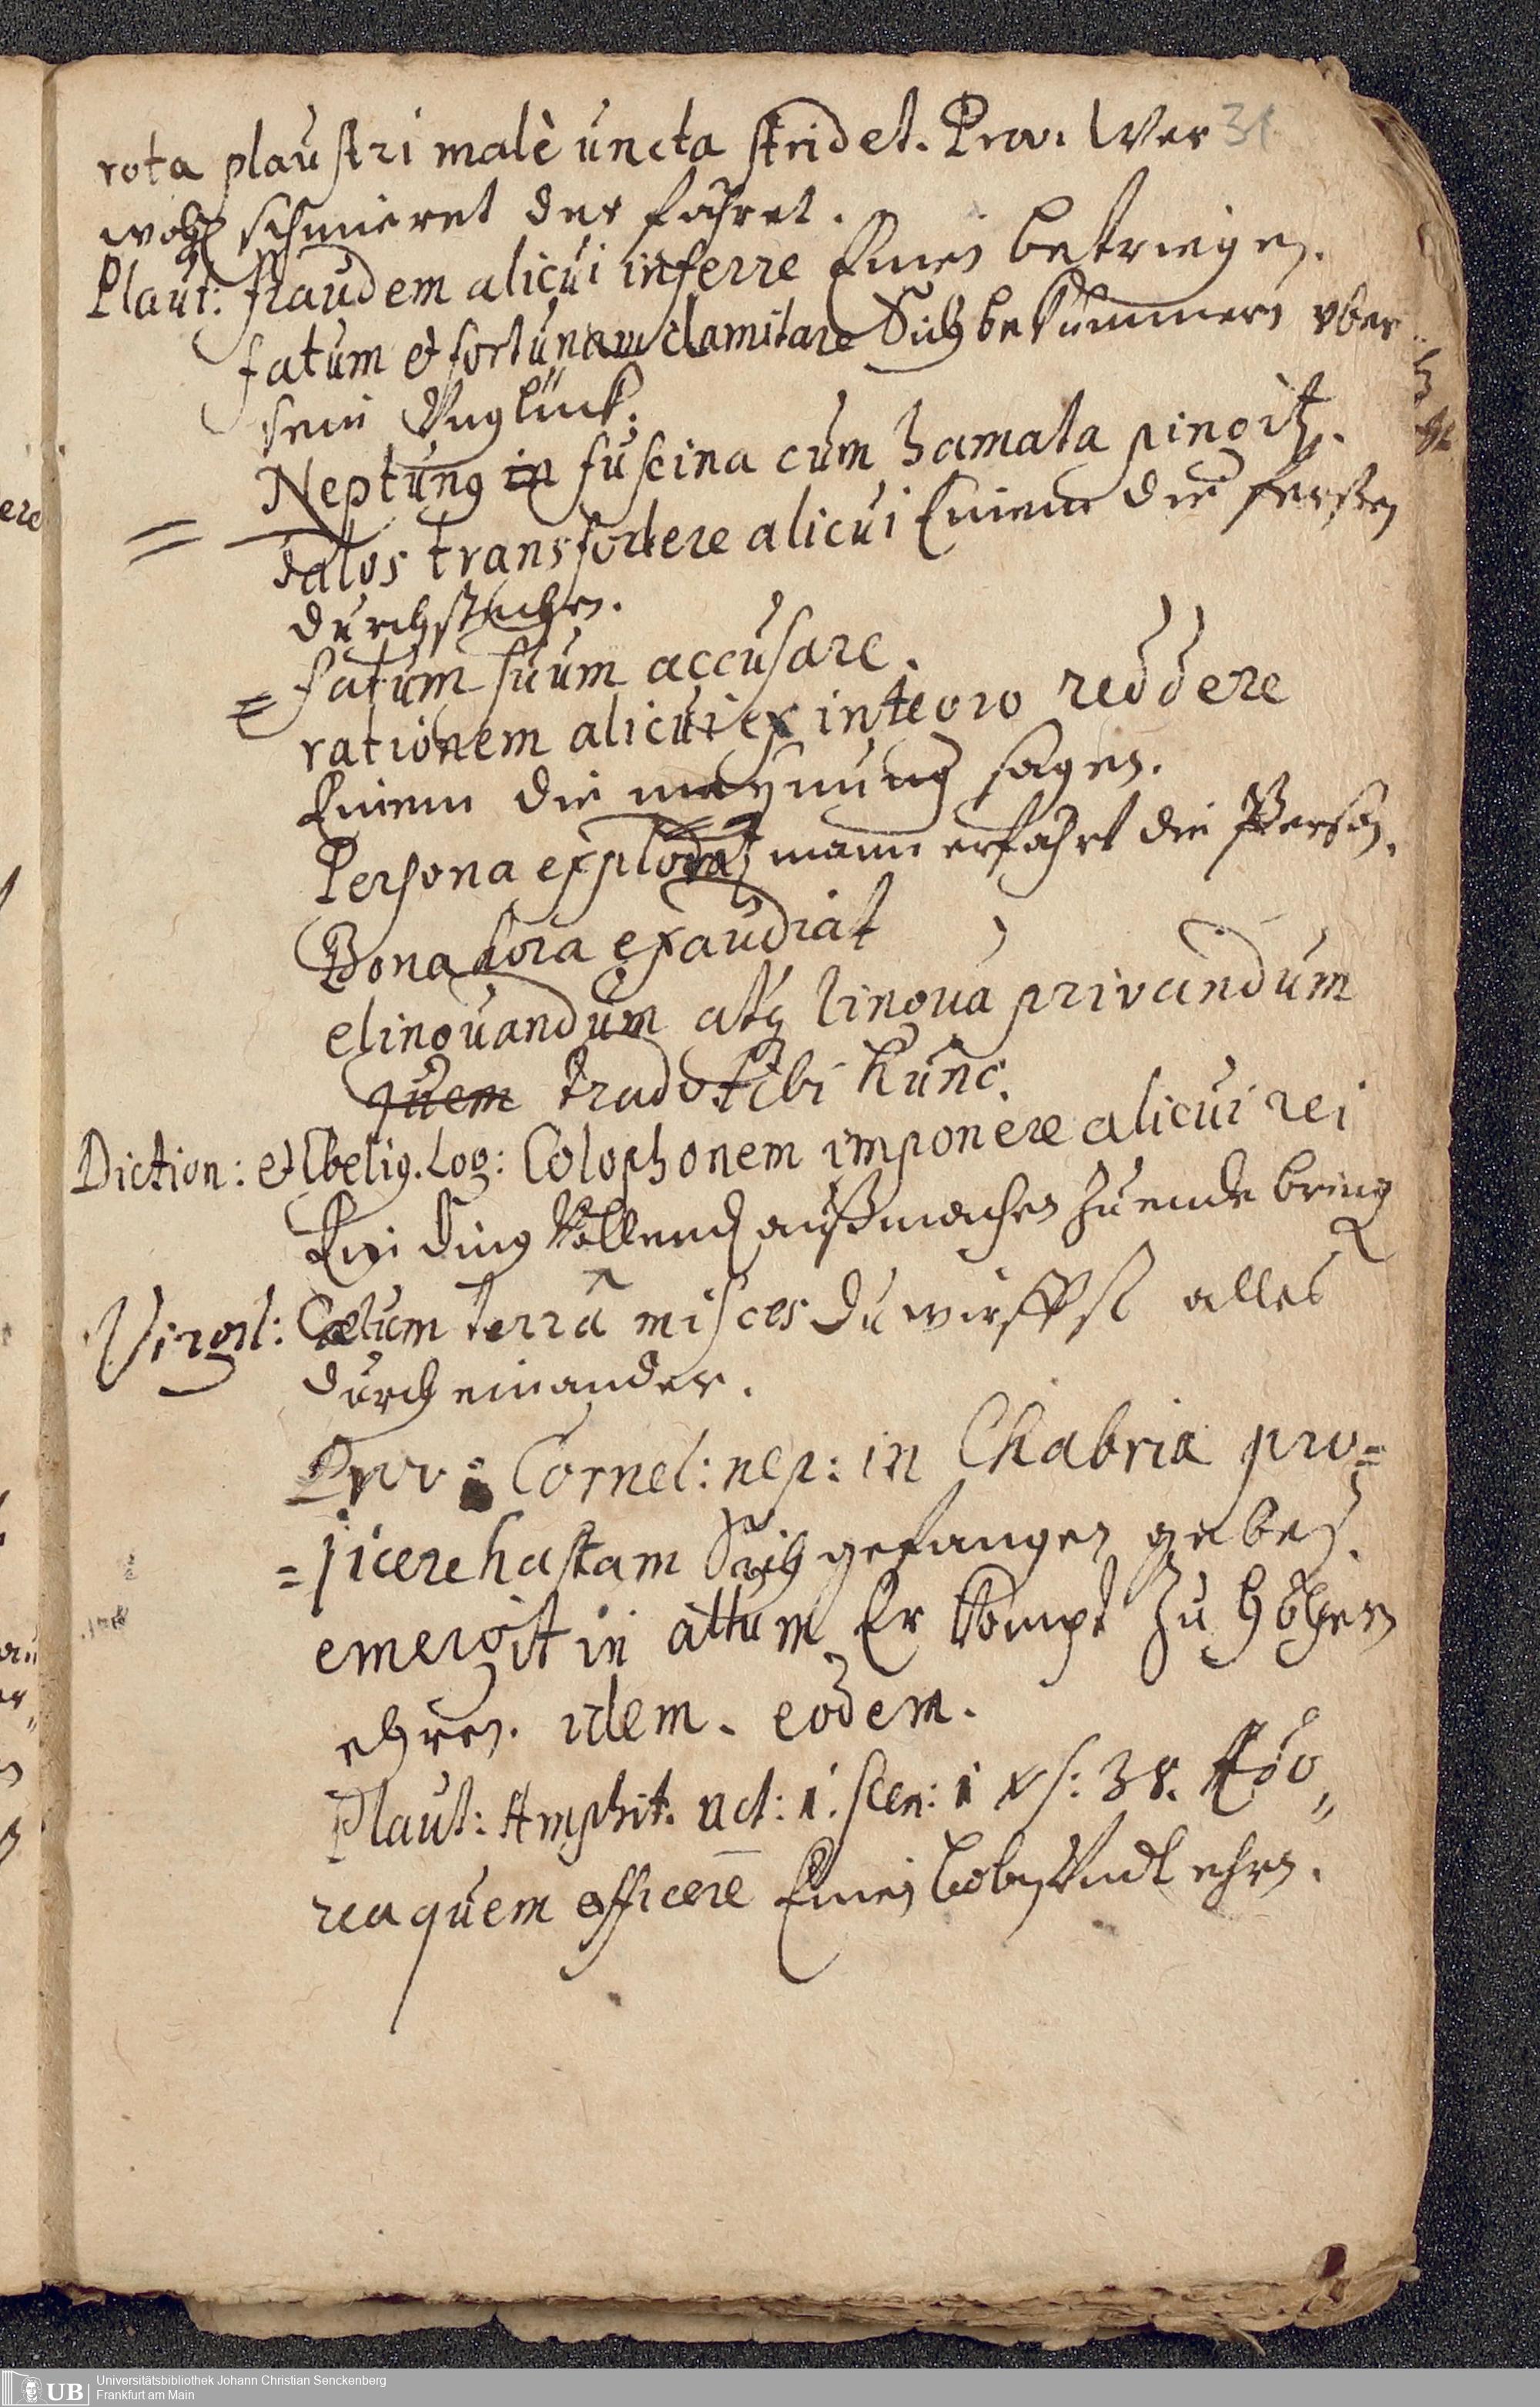 rota plaustri malè uncta stridet. Prov. Wer 31
wohl schmieret der fähret.
Plaut: fraudem alicui inferre Einen betriegen.
fatum et fortunam clamitare Sich bekümmern vber
sein Vnglück.
Neptunus in fuscina cum hamata pingitur.
= talos transfodere alicui Einem die fersen
durchstechen.
= fatum suum accusare.
rationem alicui ex integro reddere
Einem die meynung sagen.
Persona explorat mann erfährt die Person.
Bona fora exaudiat
elinguandum atque lingua privandum
quem trado tibi hunc.
Diction: et Log: Colophonem imponere alicui rei
Ein ding Vollend außmachen zu ende bring
Virgil: Cælum terrâ misces Du wirffst alles
durch einander.
Prov: Cornel: nep: in Chabria pro=
=jicere hastam Sich gefangen geben.
emergit in altum Er kompt zu hohen
ehren. idem. eodem.
Plaut: Amphit. act: 1. scen: 1 vs: 38.
quem efficere Einen loben Vndt ehren.
Universitätsbibliothek Johann Christian Senckenberg
UB Frankfurt am Main